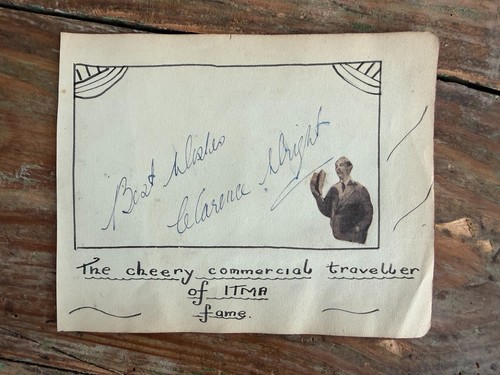 Best Wishes
Clarence Wright
The cheery commercial traveller
of ITMA
fame.